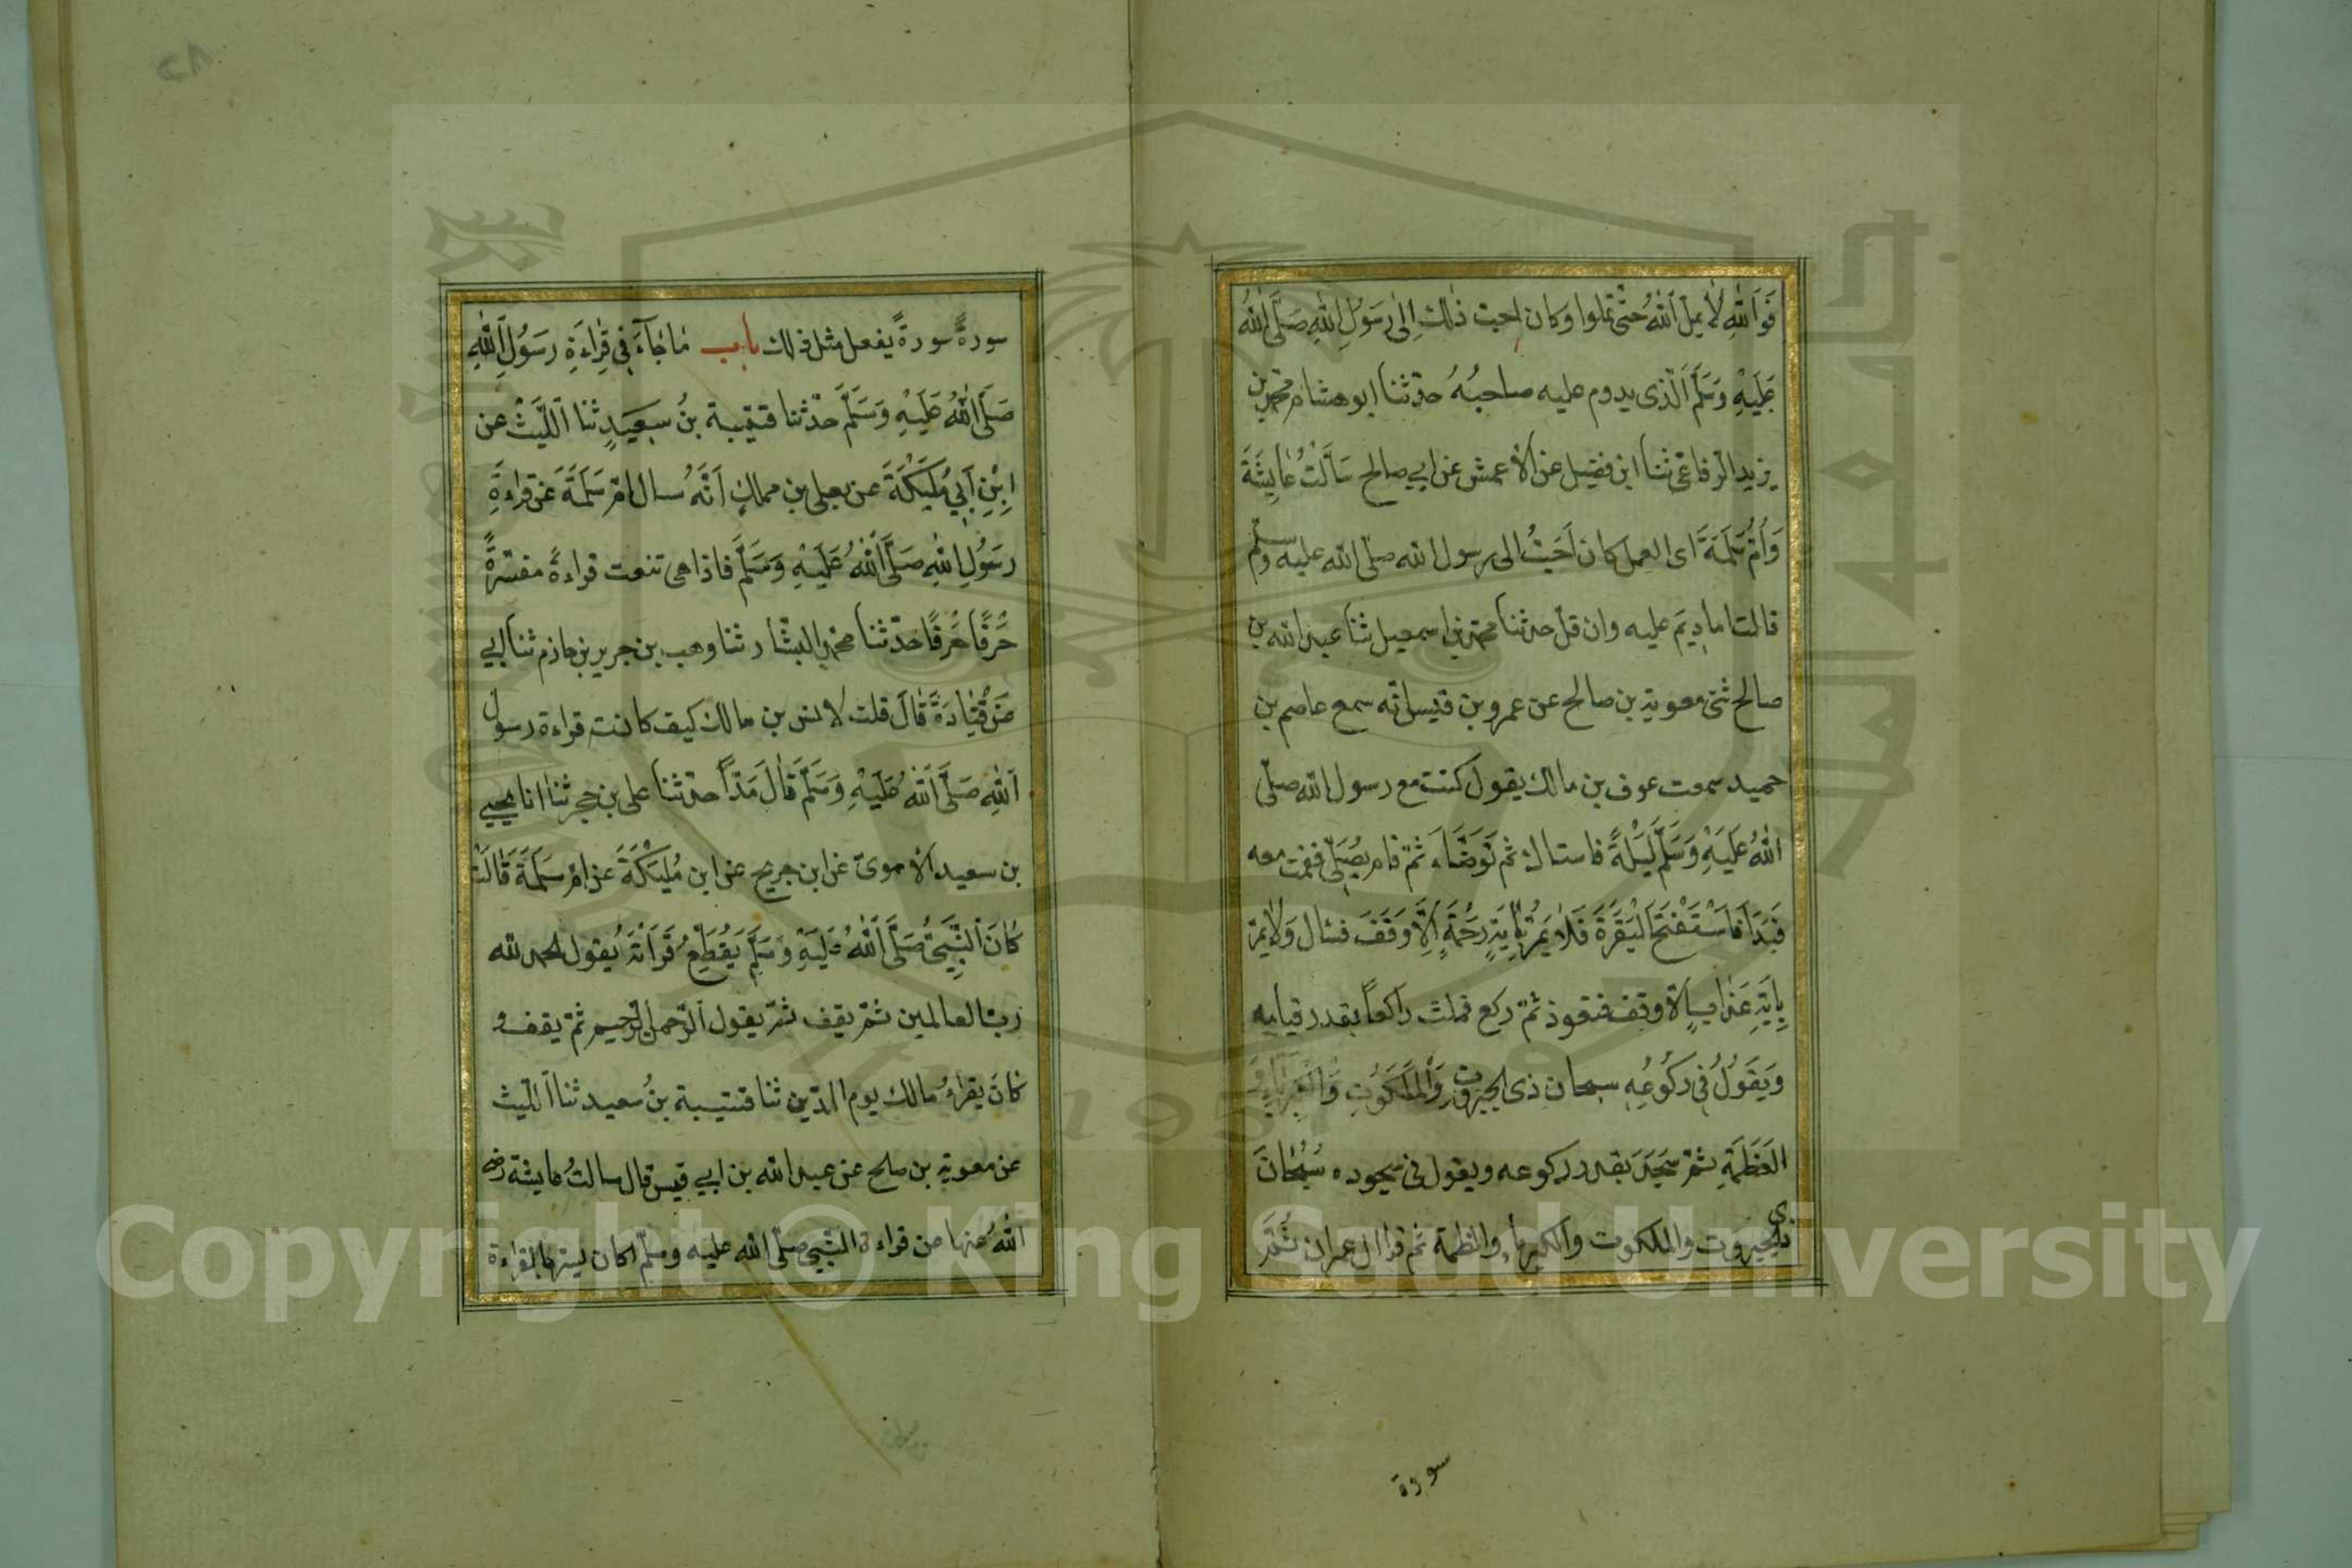 فَوَاَللّٰهِ لَا يملّ اَللّٰهُ حتّى تملوا وكان احبّ ذٰلك اِلٰى رَسُوْلِ اللّٰهِ صَلَّى اللّٰهُ
عَلَيْهِ وَسَلَّمَ اَلّذى يدوم عليه صاحبُهُ حدّثنا ابو هشام محمّد بن
يزيد الرّفاعىّ ثنا ابن فضيل عن الأعمش عن ابي صالح سَاَلْتُ عَايِشَةَ
وَاُمُّ سَلَمَةَ اى العمل كان اَحَبُّ الى رسول الله صلّى الله عليه وسلّم
قالتا ما دِيْمَ عليه وان قلّ حدثنا محمّد بن اسمعيل ثنا عبد الله بن
صالح ثنى معوية بن صالح عن عمرو بن قيس انّه سمع عاصم بن
حميد سمعت عوف بن مالك يقول كنت مع رسول الله صلّى
اللّٰهُ عَلَيْهِ وَسَلَّمَ لَيْلَةً فاستاك ثم تَوَضَّاَء ثمّ قام يُصَلِّى فقمت معه
فَبَدَاَ فَاسْتَفْتَحَ الْبَقَرَةَ فَلَا يَمُرُّ بِاٰيَةِ رَحْمَةٍ اِلَّا وَقَفَ فسال وَلَا يمرّ
بِاٰيَةِ عَذابٍ الّا وقف فتعوذ ثمّ ركع فمكث راكعاً بقدر قيامه
وَيَقُوْلُ فِى رَكُوْعِهِ سبحان ذى الجبروت وَالْمَلَكُوْتِ وَالْكِبْرِيَاءِ وَ
العَظَمَةِ ثمّ سَجَدَ بقدر ركوعه ويقول فى سجوده سُبْحَانَ
ذى الجبروت والملكوت والكبرياء والعظمة ثم قرا ال عمران ثُمَّ
سورة
سورةً سورةً يفعل مثل ذلك باب مَا جَآءَ فِى قِرَاءَةِ رَسُوْلِ اَللّٰهِ
صَلَّى اللّٰهُ عَلَيْهِ وَسَلَّمَ حدّثنا قتيبة بنُ سَعِيَدٍ ثنا اَللَّيْثُ عن
اِبْنِ اَبِي مُلَيْكَةَ عن يعلى بن مملكٍ اَنَّهُ سال امّ سَلَمَةَ عَن قراءةِ
رَسُوْلِ اللّٰهِ صَلَّى اللّٰهُ عَلَيْهِ وَسَلَّمَ فاذا هى تنعت قراءةً مفسّرةً
حَرفًا حَرفًا حدّثنا محمّد البشّار ثنا وهب بن جرير بن حازم ثنا ابي
عَن قُتَادَةَ قَالَ قلت لانس بن مالك كيف كانت قراءة رسول
اَللّٰهِ صَلَّى اَللّٰهُ عَلَيْهِ وَسَلَّمَ قَالَ مَدّاً حدثنا على بن حجر ثنا انا يحيي
بن سعيد الاموىّ عن ابن جريج عن ابن مُلَيْكَةَ عن امّ سَلَمَةَ قَالَتْ
كَانَ النَّبِىُّ صَلَّى اللّٰهُ عَلَيْهِ وَسَلَّمَ يَقُطِّعُ قَرَاَتَهُ يقول الحمد لله
ربّ العالمين ثمّ يقف ثمّ يقول الرّحمن الرّحيم ثمّ يقف و
كَانَ يقراءُ مالك يوم الدّين ثنا قتيبة بنُ سعيد ثنا اَللّيث
عن معوية بن صلح عن عبد الله بن ابي قيس قال سالتُ عايشة رضى
اللّٰهُ عنها عن قراءة النّبىّ صلّى الله عليه وسلّم اكان يسرّ بالقراءة
Copyright © King Saud University
1957